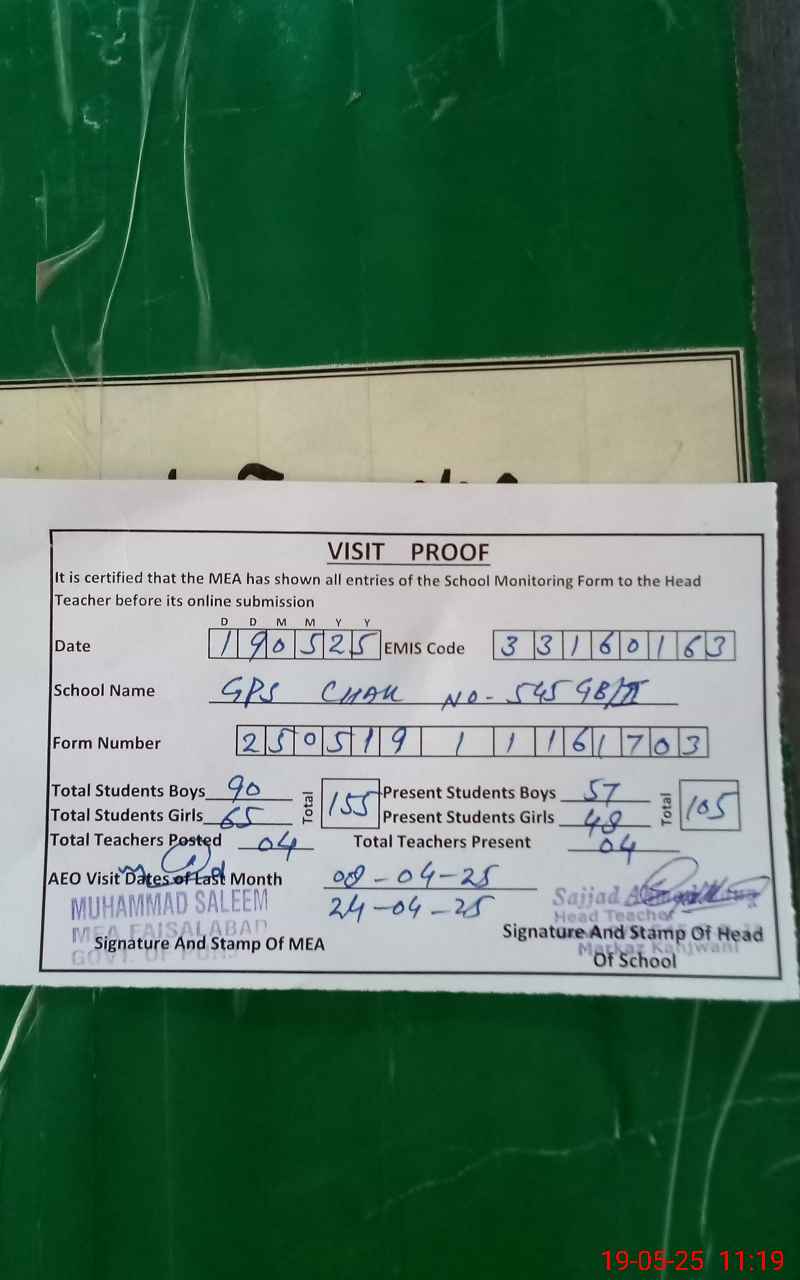 VISIT PROOF
It is certified that the MEA has shown all entries of the School Monitoring Form to the Head
Teacher before its online submission
D D M M Y Y
Date 190525 EMIS Code 33160163
School Name GPS CHAK NO- 545 GB/II
Form Number 25051911161703
Total Students Boys 90 Total 155 Present Students Boys 57 Total 105
Total Students Girls 65 Present Students Girls 48
Total Teachers Posted 04 Total Teachers Present 04
AEO Visit Dates of Last Month 08-04-25
24-04-25
MUHAMMAD SALEEM
MEA FAISALABAD
GOVT. OF
Signature And Stamp Of MEA
Sajjad
Head Teacher
Signature And Stamp Of Head
Markaz Kanjwani
Of School
19-05-25 11:19